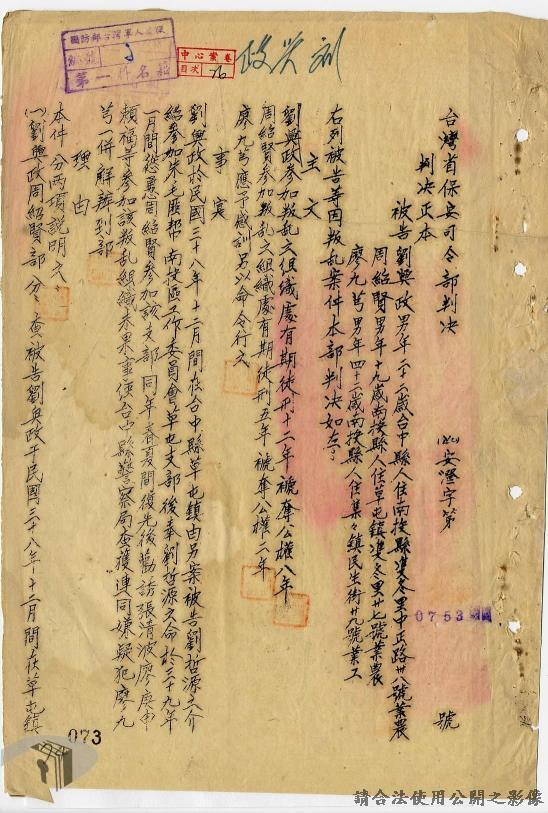 台灣省保安司令部判决
安澄字第
0753
號
判决正本
被告劉興政男年二十二歲台中縣人住南投縣準冬里中正路卅八號業農
周紹賢男年十九歲南投縣人住草屯鎮準冬里廿七號業農
廖九芎男年四十二歲南投縣人住集々鎮民生街廿九號業工
右列被告等因叛乱案件本部判决如左
主文
劉興政參加叛乱之組織處有期徒刑十二年褫奪公權八年
周紹賢參加叛乱之組織處有期徒刑五年褫奪公權二年
廖九芎應予感訓另以命令行之
事實
劉興政於民國三十八年十二月間在台中縣草屯鎮由另案被告劉哲源之介
紹參加朱毛匪幫南投區工作委員會草屯支部後奉劉哲源之命於三十九年
一月間慫恿周紹賢參加該支部同年春夏間復先後勸誘張清波廖庚申
賴福等參加該叛乱組織未果事經台中縣警察局查獲連同嫌疑犯廖九
芎一併解辦到部
理由
本件分兩項說明之
(一)劉興政周紹賢部分查被告劉興政于民國三十八年十二月間在草屯鎮
中心案卷
目次
76
第一件名稱
073
請合法使用公開之影像